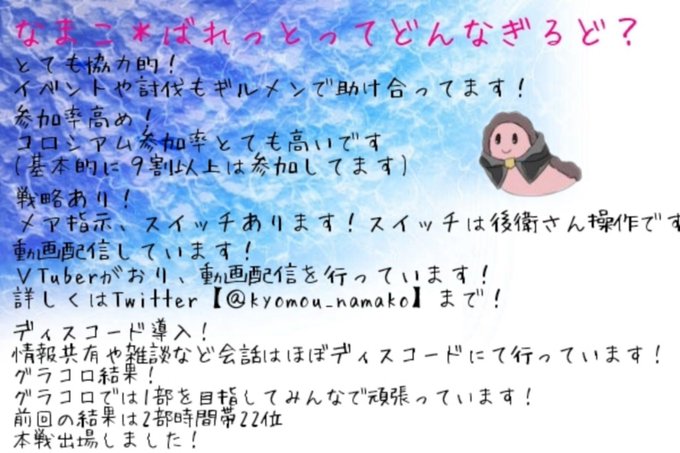 なまこ*ばれっとってどんなぎるど?
とても協力的!
イベントや討伐もギルメンで助け合ってます!
参加率高め!
コロシアム参加率とても高いです
(基本的に9割以上は参加してます)
戦略あり!
メア指示、スイッチあります!スイッチは後衛さん操作です
動画配信しています!
VTuberがおり、動画配信を行っています!
詳しくはTwitter【@kyomou_namako】まで!
ディスコード導入!
情報共有や雑談など会話はほぼディスコードにて行っています!
グラコロ結果!
グラコロでは1部を目指してみんなで頑張っています!
前回の結果は2部時間帯22位
本戦出場しました!